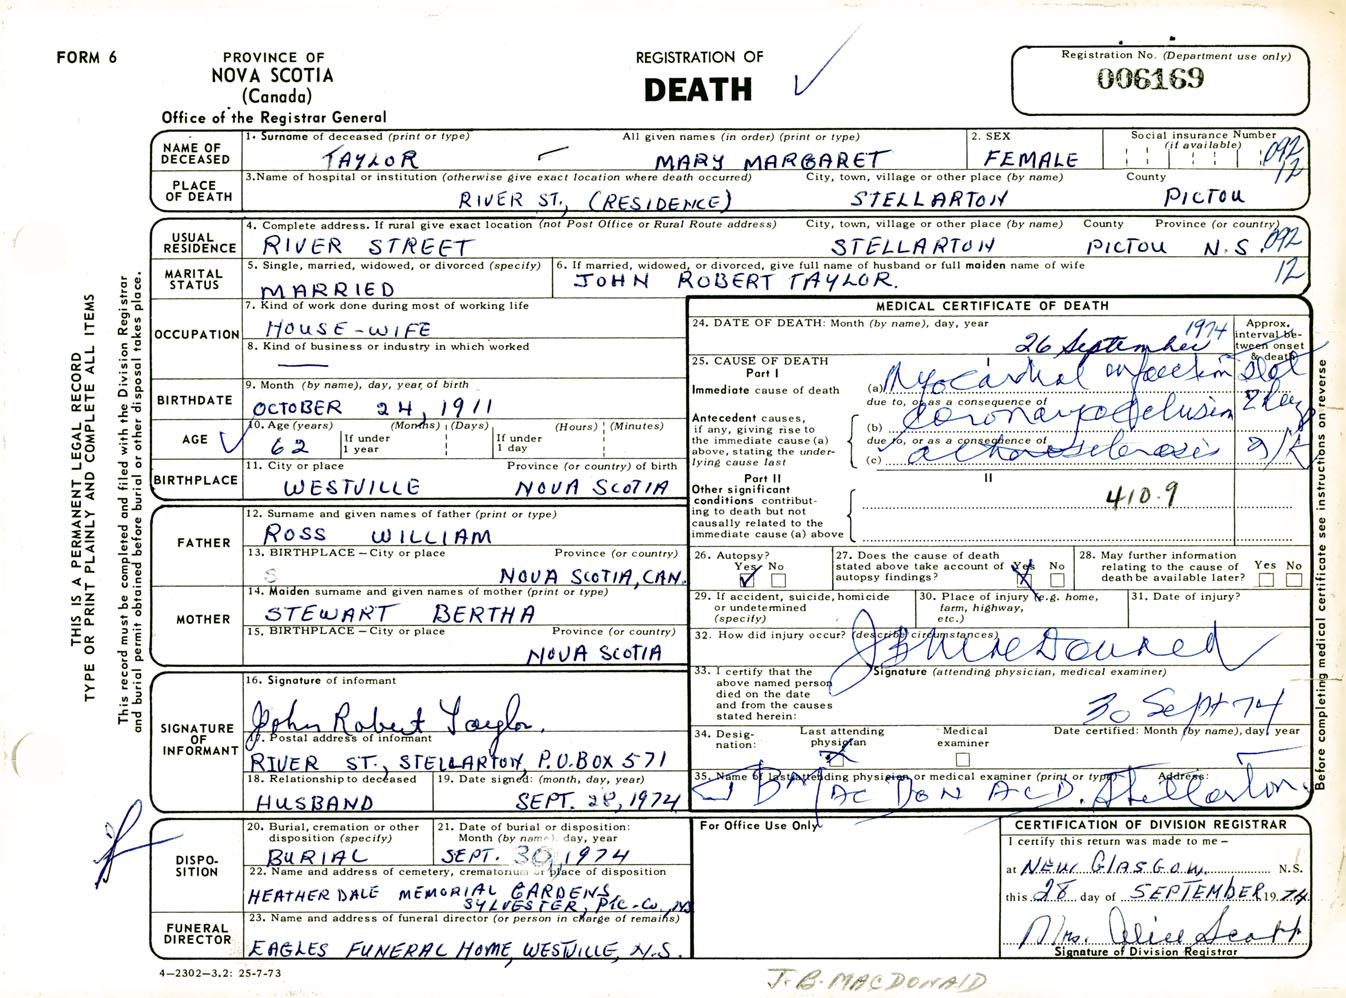 FORM 6
PROVINCE OF
NOVA SCOTIA
(Canada)
Office of the Registrar General
REGISTRATION OF
DEATH
Registration No. (Department use only)
006169
THIS IS A PERMANENT LEGAL RECORD
TYPE OR PRINT PLAINLY AND COMPLETE ALL ITEMS
This record must be completed and filed with the Division Registrar
and burial permit obtained before burial or other disposal takes place.
NAME OF
DECEASED
1. Surname of deceased (print or type) All given names (in order) (print or type)
TAYLOR MARY MARGARET
2. SEX
FEMALE
Social insurance Number
(if available)
092
12
PLACE
OF DEATH
3.Name of hospital or institution (otherwise give exact location where death occurred) City, town, village or other place (by name) County
RIVER ST., (RESIDENCE) STELLARTON PICTOU
USUAL
RESIDENCE
4. Complete address. If rural give exact location (not Post Office or Rural Route address) City, town, village or other place (by name) County Province (or country)
RIVER STREET STELLARTON PICTOU N.S. 092
12
MARITAL
STATUS
5. Single, married, widowed, or divorced (specify)
MARRIED
6. If married, widowed, or divorced, give full name of husband or full maiden name of wife
JOHN ROBERT TAYLOR.
OCCUPATION
7. Kind of work done during most of working life
HOUSE-WIFE
8. Kind of business or industry in which worked
BIRTHDATE
9. Month (by name), day, year of birth
OCTOBER 24, 1911
AGE
10. Age (years) (Months) (Days) (Hours) (Minutes)
62
If under
1 year
If under
1 day
BIRTHPLACE
11. City or place Province (or country) of birth
WESTVILLE NOVA SCOTIA
FATHER
12. Surname and given names of father (print or type)
ROSS WILLIAM
13. BIRTHPLACE – City or place Province (or country)
NOVA SCOTIA, CAN.
MOTHER
14. Maiden surname and given names of mother (print or type)
STEWART BERTHA
15. BIRTHPLACE – City or place Province (or country)
NOVA SCOTIA
SIGNATURE
OF
INFORMANT
16. Signature of informant
John Robert Taylor.
17. Postal address of informant
RIVER ST., STELLARTON, P.O. BOX 571
18. Relationship to deceased
HUSBAND
19. Date signed: (month, day, year)
SEPT. 28, 1974
DISPO-
SITION
20. Burial, cremation or other
disposition (specify)
BURIAL
21. Date of burial or disposition:
Month (by name), day, year
SEPT. 30, 1974
22. Name and address of cemetery, crematorium or place of disposition
HEATHERDALE MEMORIAL GARDENS,
SYLVESTER, PIC. Co., N.S
FUNERAL
DIRECTOR
23. Name and address of funeral director (or person in charge of remains)
EAGLES FUNERAL HOME, WESTVILLE, N.S.
4–2302–3.2: 25-7-73
MEDICAL CERTIFICATE OF DEATH
24. DATE OF DEATH: Month (by name), day, year
26 September 1974
Approx.
interval be-
tween onset
& death
25. CAUSE OF DEATH
Part I
I
Immediate cause of death
(a) Myocardial infarction
due to, or as a consequence of
Antecedent causes,
if any, giving rise to
the immediate cause (a)
above, stating the under-
lying cause last
(b) coronary occlusion
due to, or as a consequence of
(c) atherosclerosis
Part II
II
Other significant
conditions contribut-
ing to death but not
causally related to the
immediate cause (a) above
410.9
26. Autopsy?
Yes No
27. Does the cause of death
stated above take account of
autopsy findings?
Yes No
28. May further information
relating to the cause of
death be available later?
Yes No
29. If accident, suicide, homicide
or undetermined
(specify)
30. Place of injury (e.g. home,
farm, highway,
etc.)
31. Date of injury?
32. How did injury occur? (describe circumstances)
J B MacDonald
33. I certify that the
above named person
died on the date
and from the causes
stated herein:
Signature (attending physician, medical examiner)
30 Sept 74
34. Desig-
nation:
Last attending
physician
Medical
examiner
Date certified: Month (by name), day, year
35. Name of last attending physician or medical examiner (print or type) Address:
J B MACDONALD. Stellarton
Before completing medical certificate see instructions on reverse
For Office Use Only
CERTIFICATION OF DIVISION REGISTRAR
I certify this return was made to me –
at NEW GLASGOW. N.S.
this 28 day of SEPTEMBER 1974
Mrs. Alice Scott
Signature of Division Registrar
J. B. MACDONALD